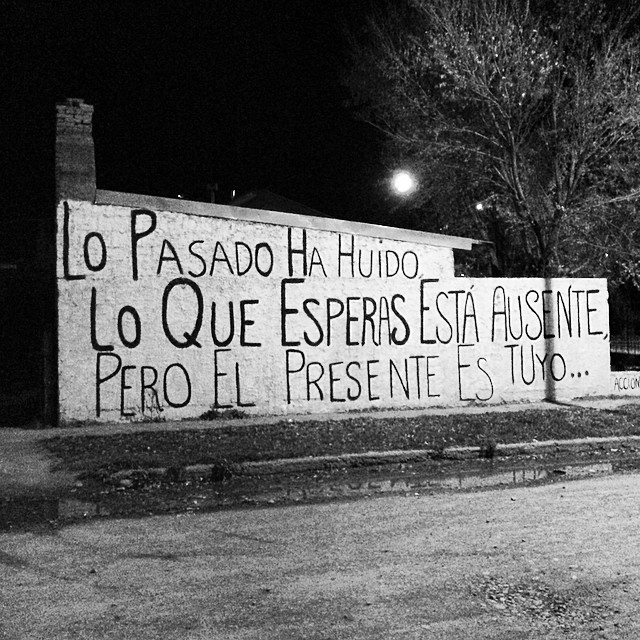 Lo Pasado Ha Huido,
Lo Que Esperas Está Ausente,
Pero El Presente Es Tuyo...
ACCIÓN